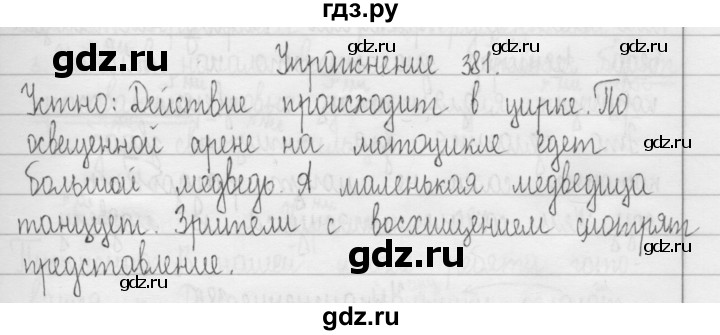 гдз.ру
gdz.ru gdz.ru gdz.ru
Упражнение 381.
Устно: Действие происходит в цирке. По
освещенной арене на мотоцикле едет
gdz.ru gdz.ru
большой медведь. А маленькая медведица
танцует. Зрители с восхищением смотрят
gdz.ru gdz.ru
представление.
gdz.ru gdz.ru